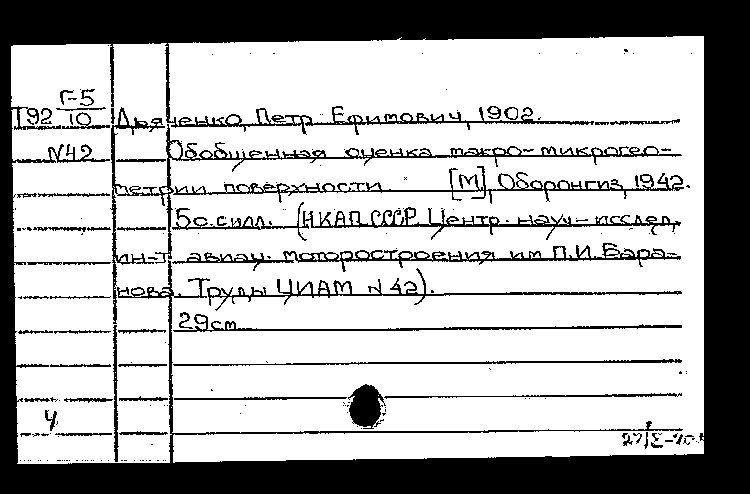 Г-5
Т92 10 Дьяченко, Петр Ефимович, 1902.
N42 Обобщенная оценка макро-микрогео-
метрии поверхности. [М], Оборонгиз, 1942.
5 с. илл. (НКАП СССР. Центр. науч-исслед.
ин-т авиац. моторостроения им П.И. Бара-
нова. Труды ЦИАМ N 42).
29см
4